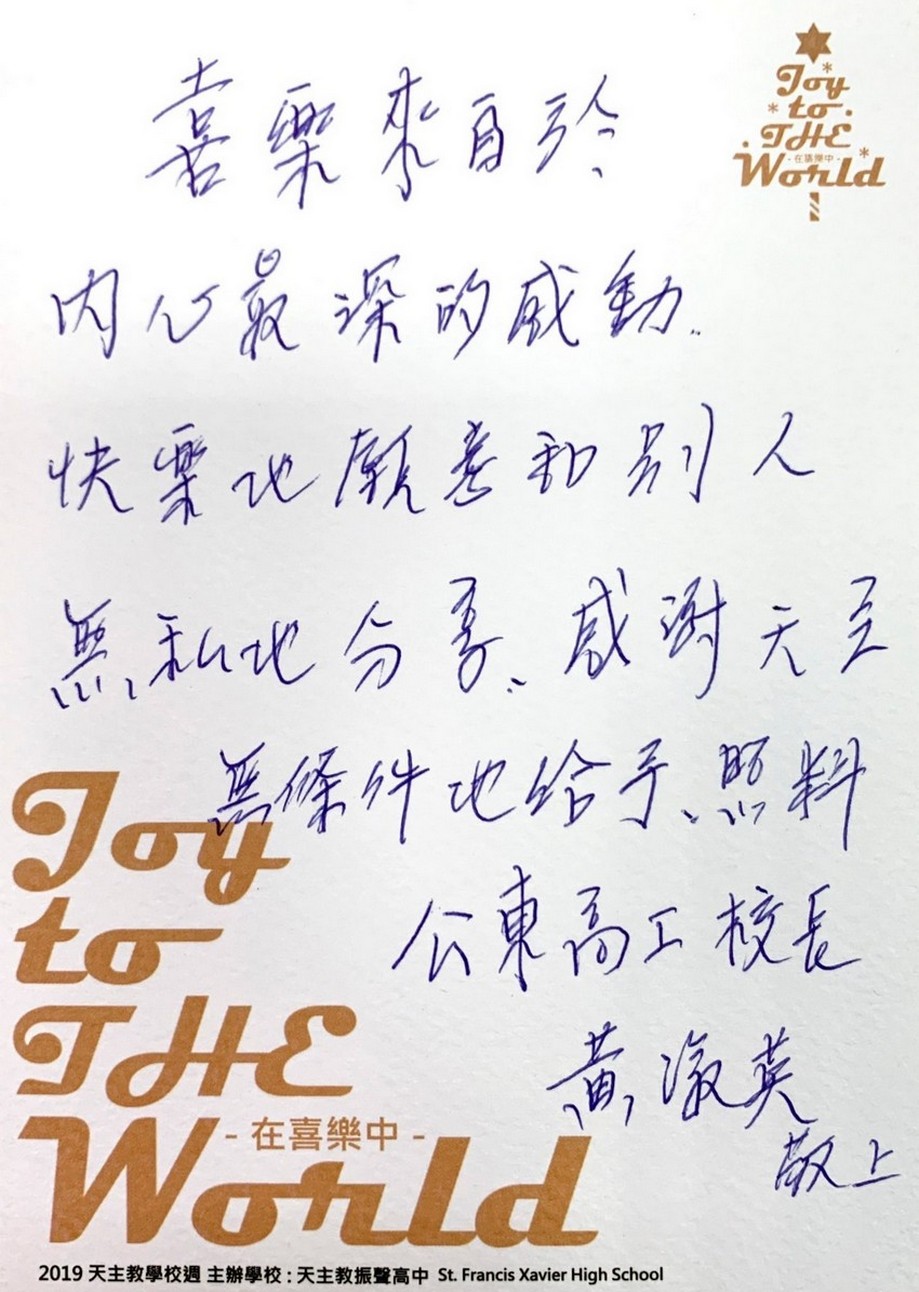 Joy
to
THE
- 在喜樂中 -
World
喜樂來自於
內心最深的感動.
快樂地願意和別人
無私地分享、感謝天主
無條件地給予、照料
公東高工校長
黃淑英
敬上
Joy
to
THE
- 在喜樂中 -
World
2019 天主教學校週 主辦學校：天主教振聲高中 St. Francis Xavier High School